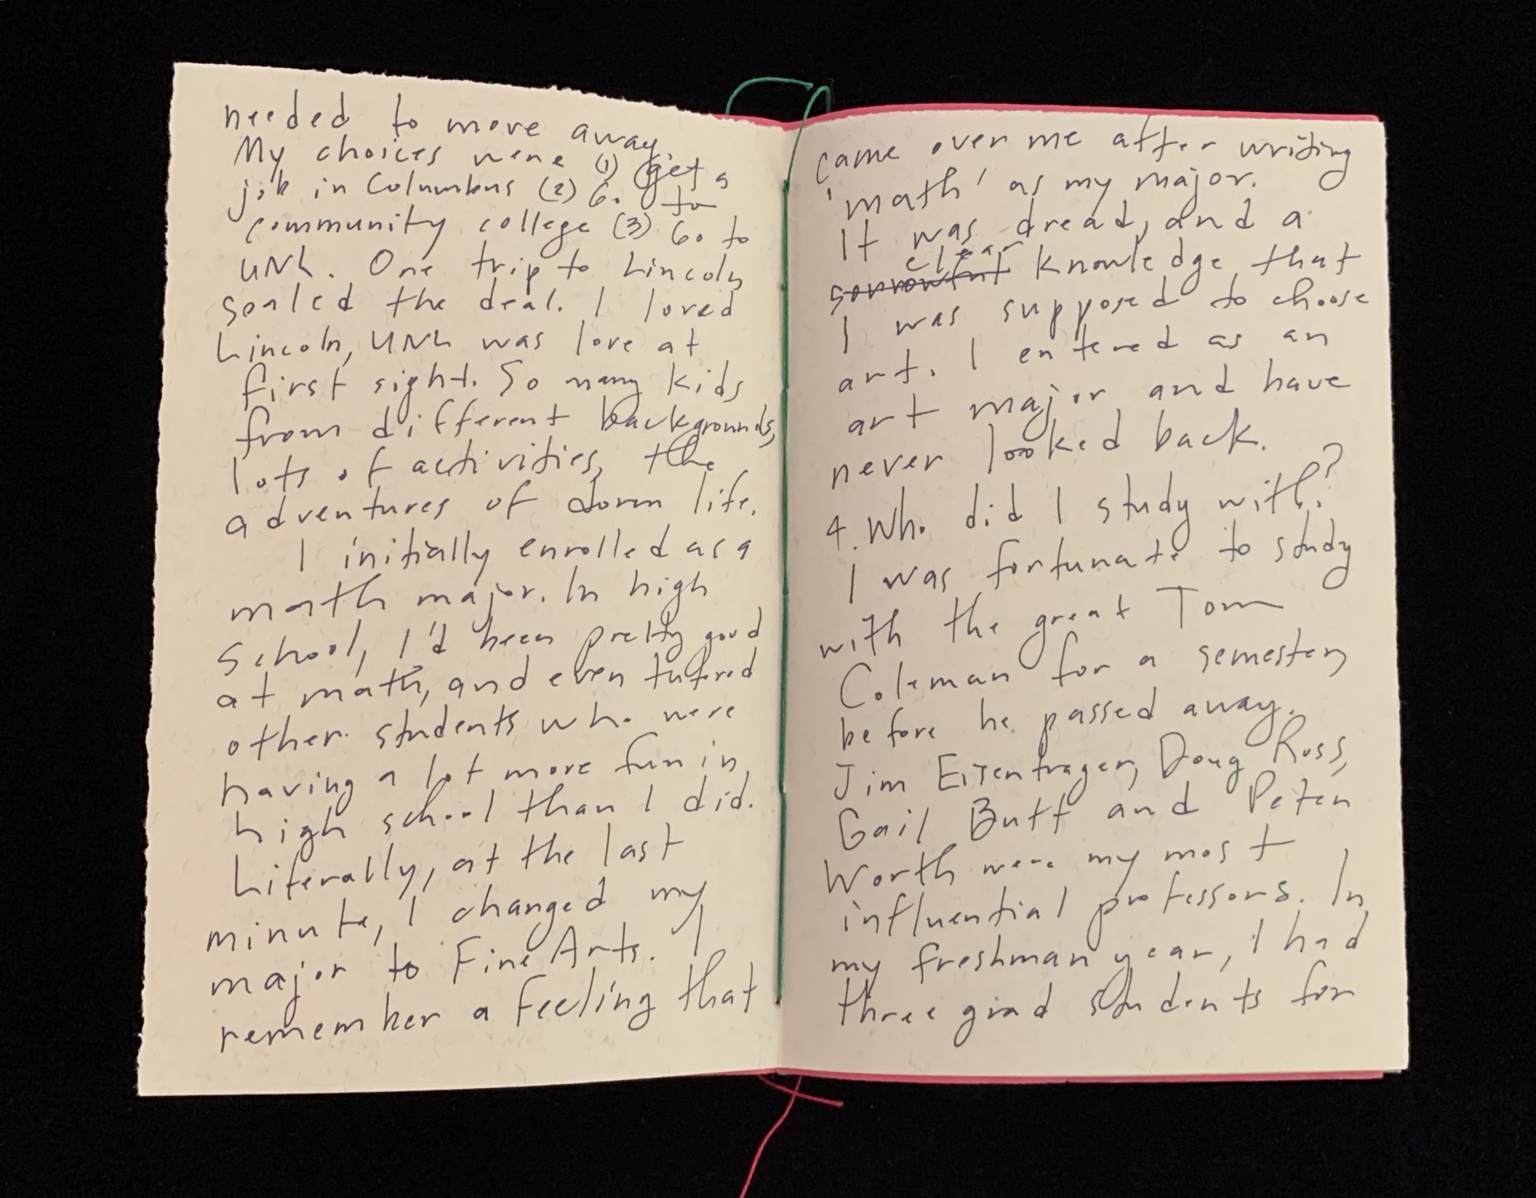 needed to move away.
My choices were (1) get a
job in Columbus (2) Go to
community college (3) Go to
UNL. One trip to Lincoln
sealed the deal. I loved
Lincoln, UNL was love at
first sight. So many kids
from different backgrounds,
lots of activities, the
adventures of dorm life.
I initially enrolled as a
math major. In high
school, I'd been pretty good
at math, and even tutored
other students who were
having a lot more fun in
high school than I did.
Literally, at the last
minute, I changed my
major to Fine Arts. I
remember a feeling that
came over me after writing
'math' as my major.
It was dread, and a
clear
sorrowful knowledge that
I was supposed to choose
art. I entered as an
art major and have
never looked back.
4. Who did I study with?
I was fortunate to study
with the great Tom
Coleman for a semester,
before he passed away.
Jim Eisentrager, Doug Ross,
Gail Butt and Peter
Worth were my most
influential professors. In
my freshman year, I had
three grad students for